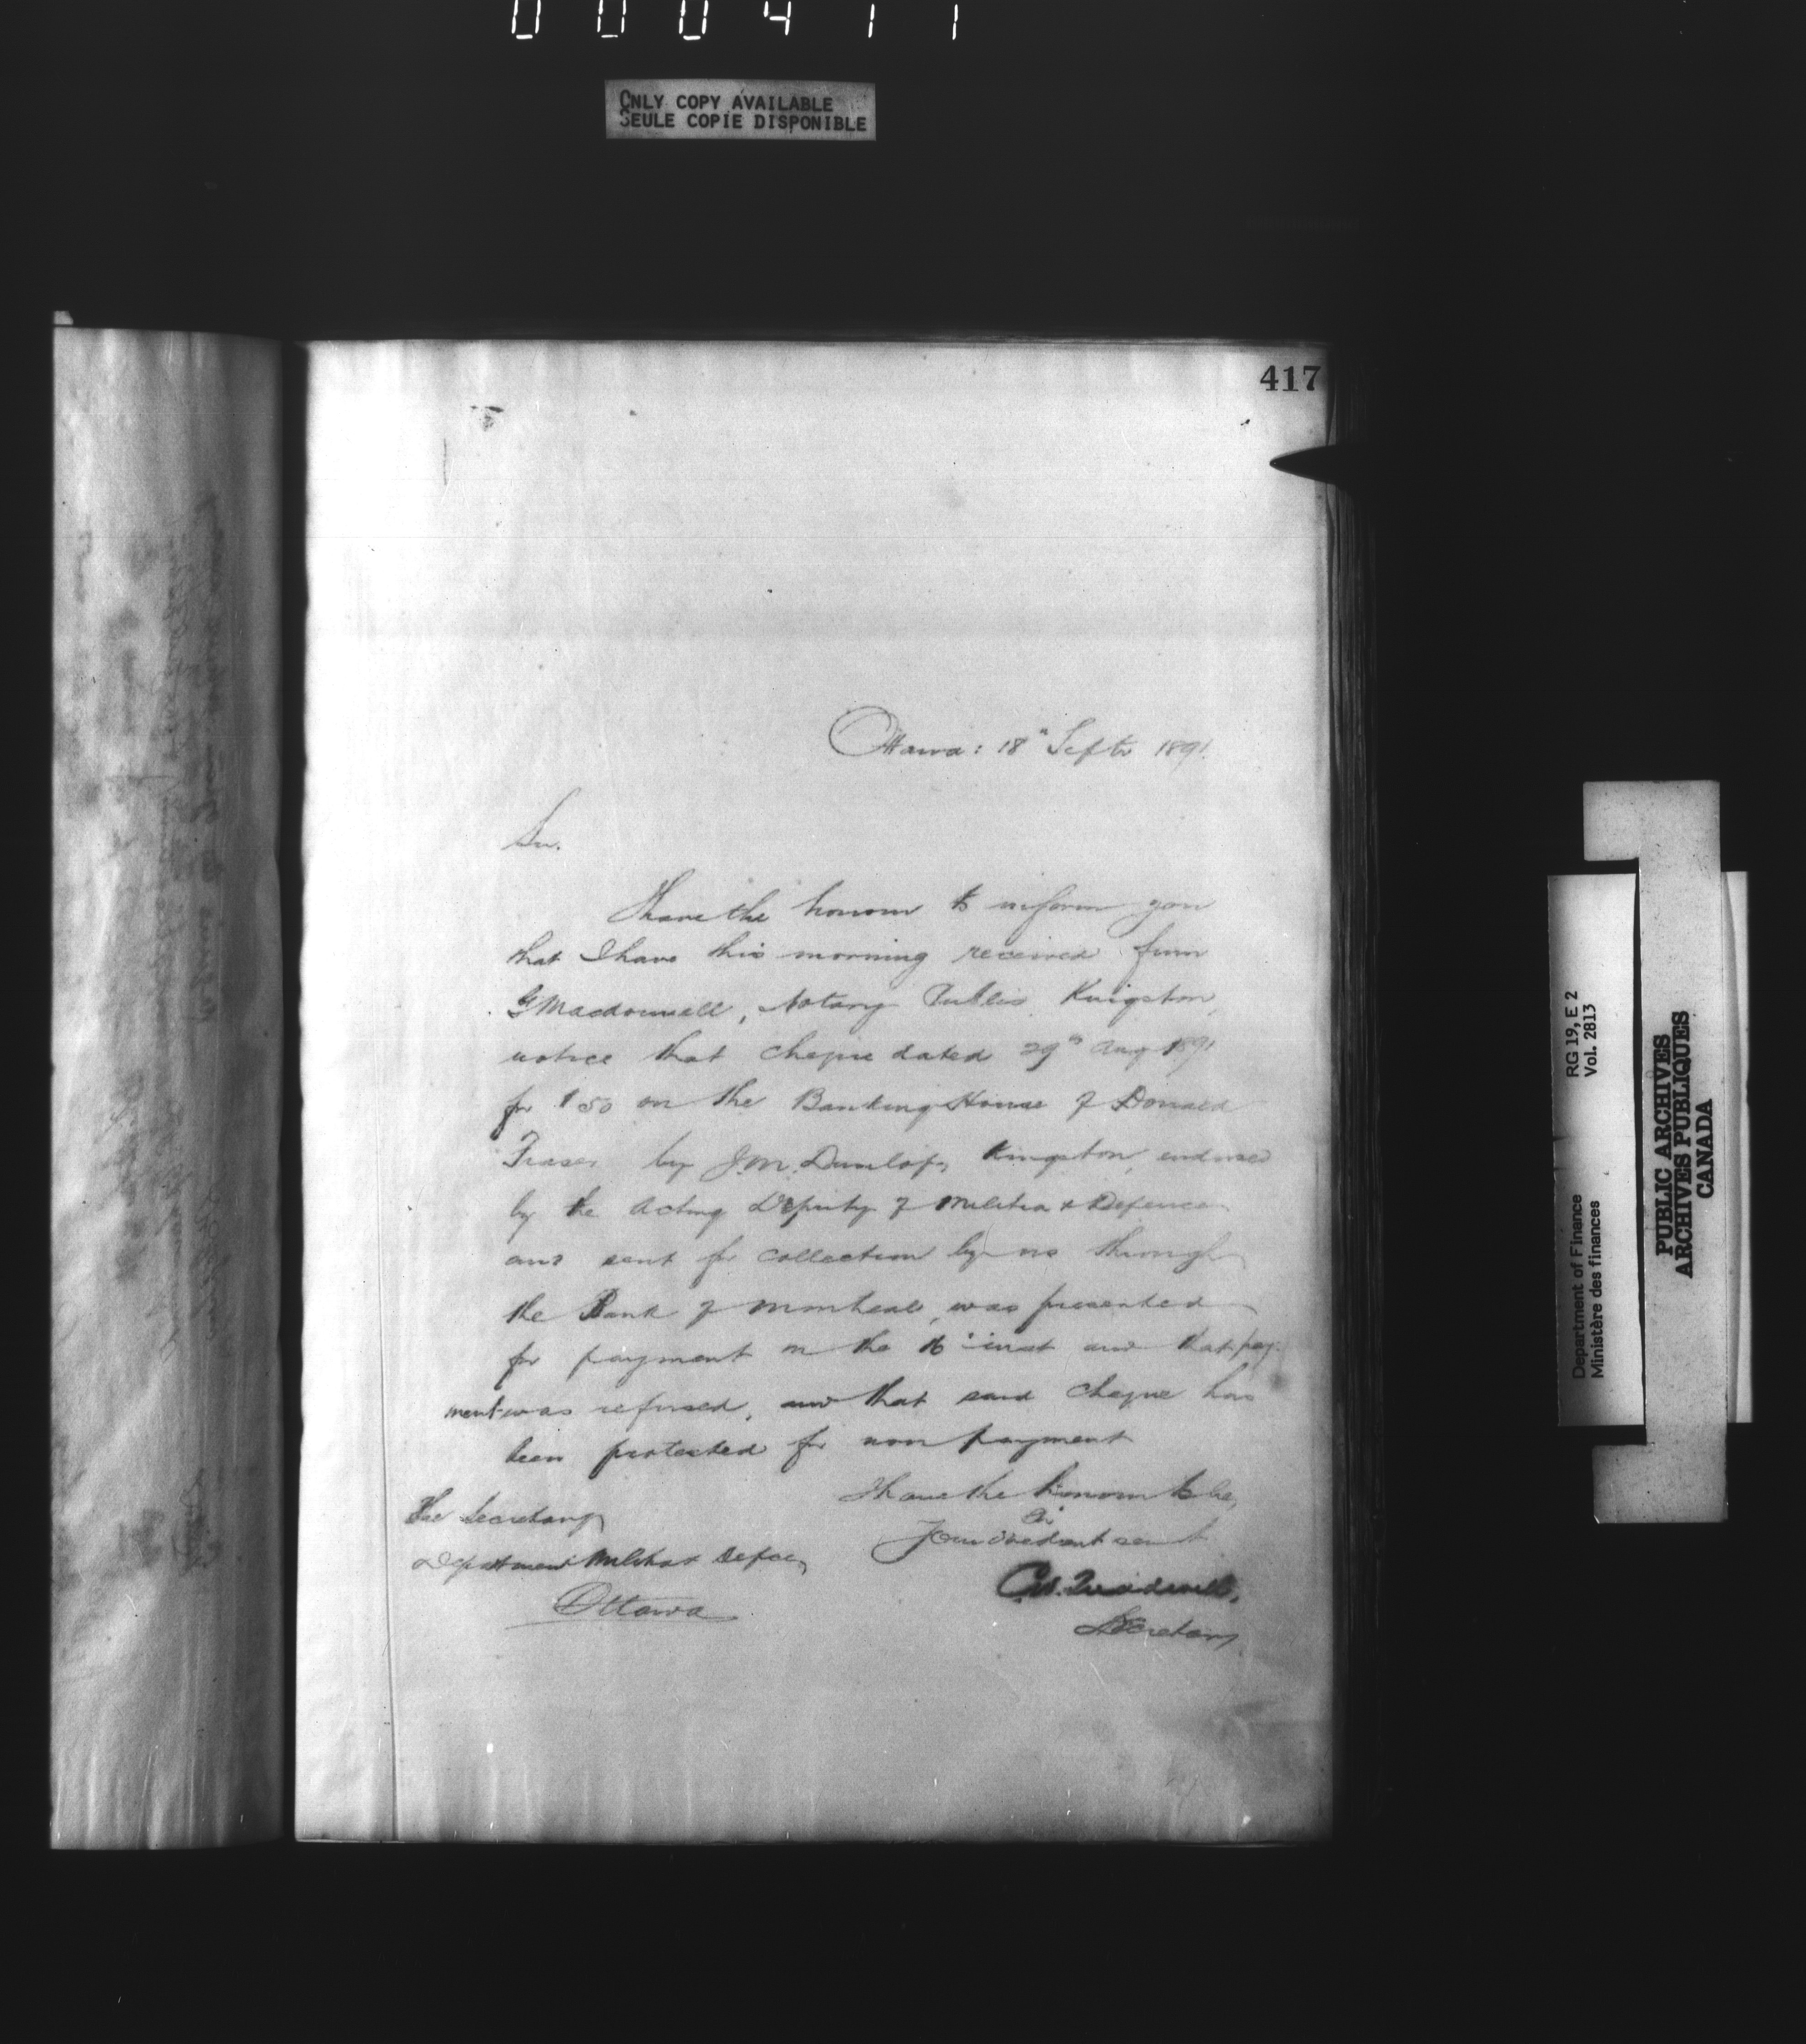 000411
ONLY COPY AVAILABLE
SEULE COPIE DISPONIBLE
417
Ottawa: 18" Septr 1891.
Sir.
I have the honour to inform you
that I have this morning received from
G Macdonnell, Notary Public Kingston,
notice that cheque dated 29th Aug 1891
for $50 on the Banking House of Donald
Fraser by J.M. Dunlop, Kingston, endorsed
by the Acting Deputy of Militia & Defence
and sent for collection by us through
the Bank of Montreal, was presented
for payment on the 16 inst and that pay-
ment was refused, and that said cheque has
been protested for non payment
I have the honour to be,
Sir
Your obedient servt
C.W. Treadwell,
Secretary
The Secretary
Department Militia & Defce,
Ottawa
Department of Finance
Ministère des finances
RG 19, E 2
Vol. 2813
PUBLIC ARCHIVES
ARCHIVES PUBLIQUES
CANADA